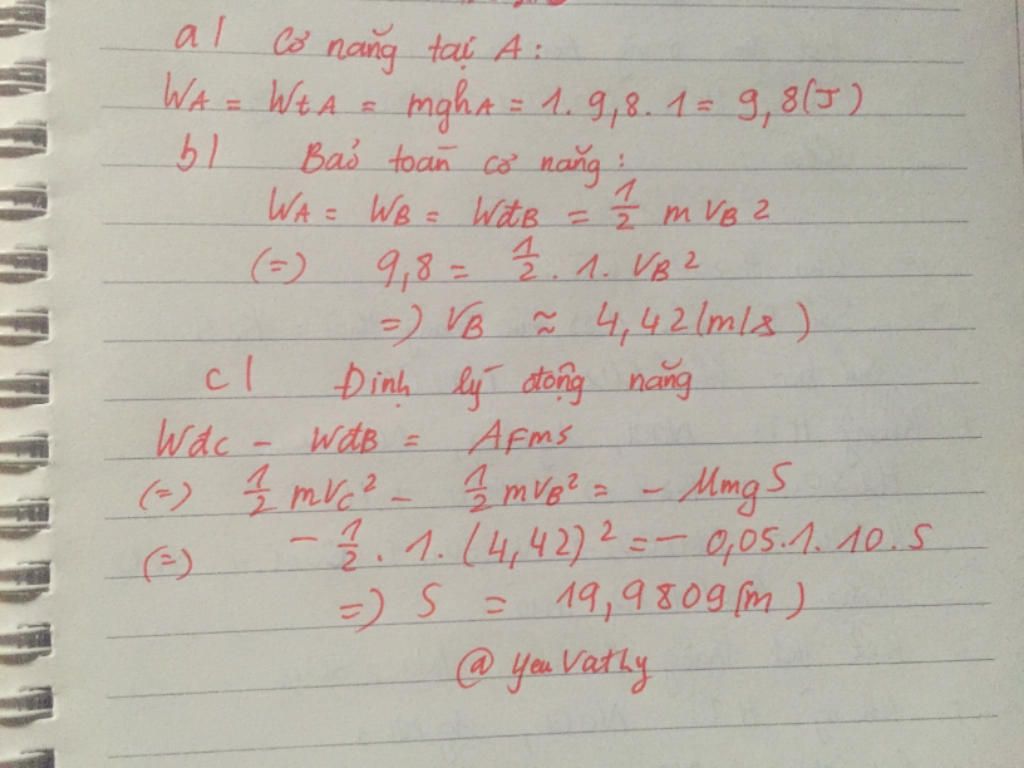 a/ Cơ năng tại A:
WA = WtA = mghA = 1. 9,8. 1 = 9,8(J)
b/ Bảo toàn cơ năng:
WA = WB = WđB = 1/2 m VB²
(=) 9,8 = 1/2 . 1. VB²
=) VB ≈ 4,42(m/s)
c/ Định lý động năng
WđC - WđB = AFms
(=) 1/2 mVC² - 1/2 mVB² = - μmgS
(=) - 1/2 . 1. (4,42)² = - 0,05.1.10.S
=) S = 19,9809(m)
@yeuVatly